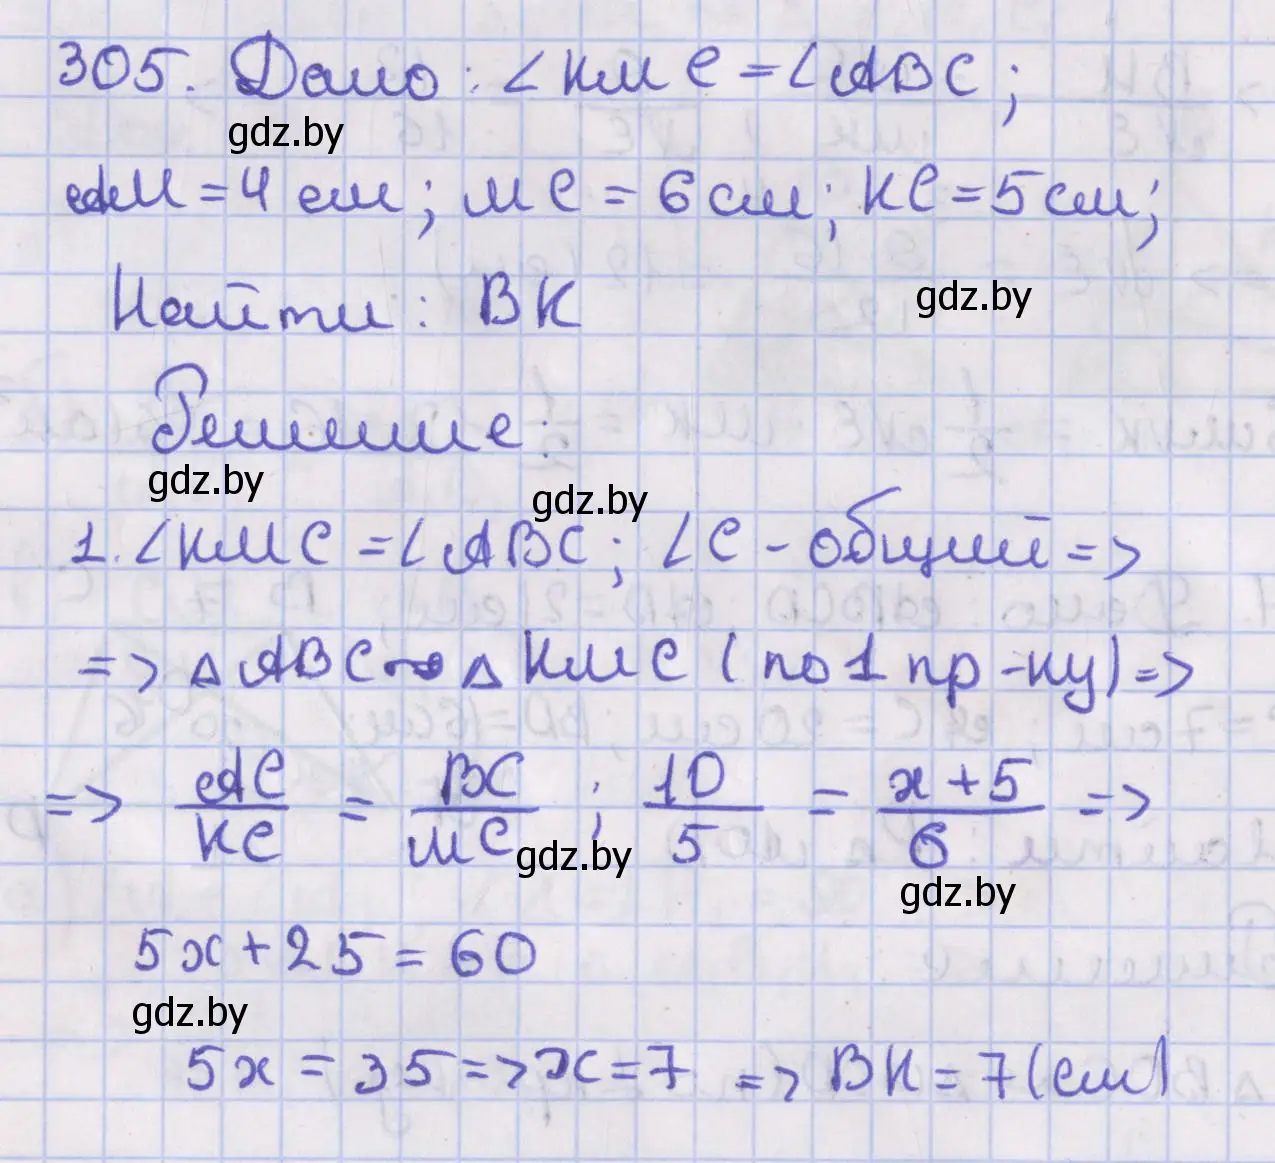 305. Дано: ∠KMC = ∠ABC;
gdz.by
AM = 4 см; MC = 6 см; KC = 5 см;
Найти: BK
gdz.by
Решение:
gdz.by
gdz.by
1. ∠KMC = ∠ABC; ∠C - общий =>
=> △ABC ~ △KMC (по 1 пр-ку) =>
=> AC/KC = BC/MC; 10/5 = x+5/6 =>
gdz.by
gdz.by
5x + 25 = 60
gdz.by
5x = 35 => x = 7 => BK = 7 (см)